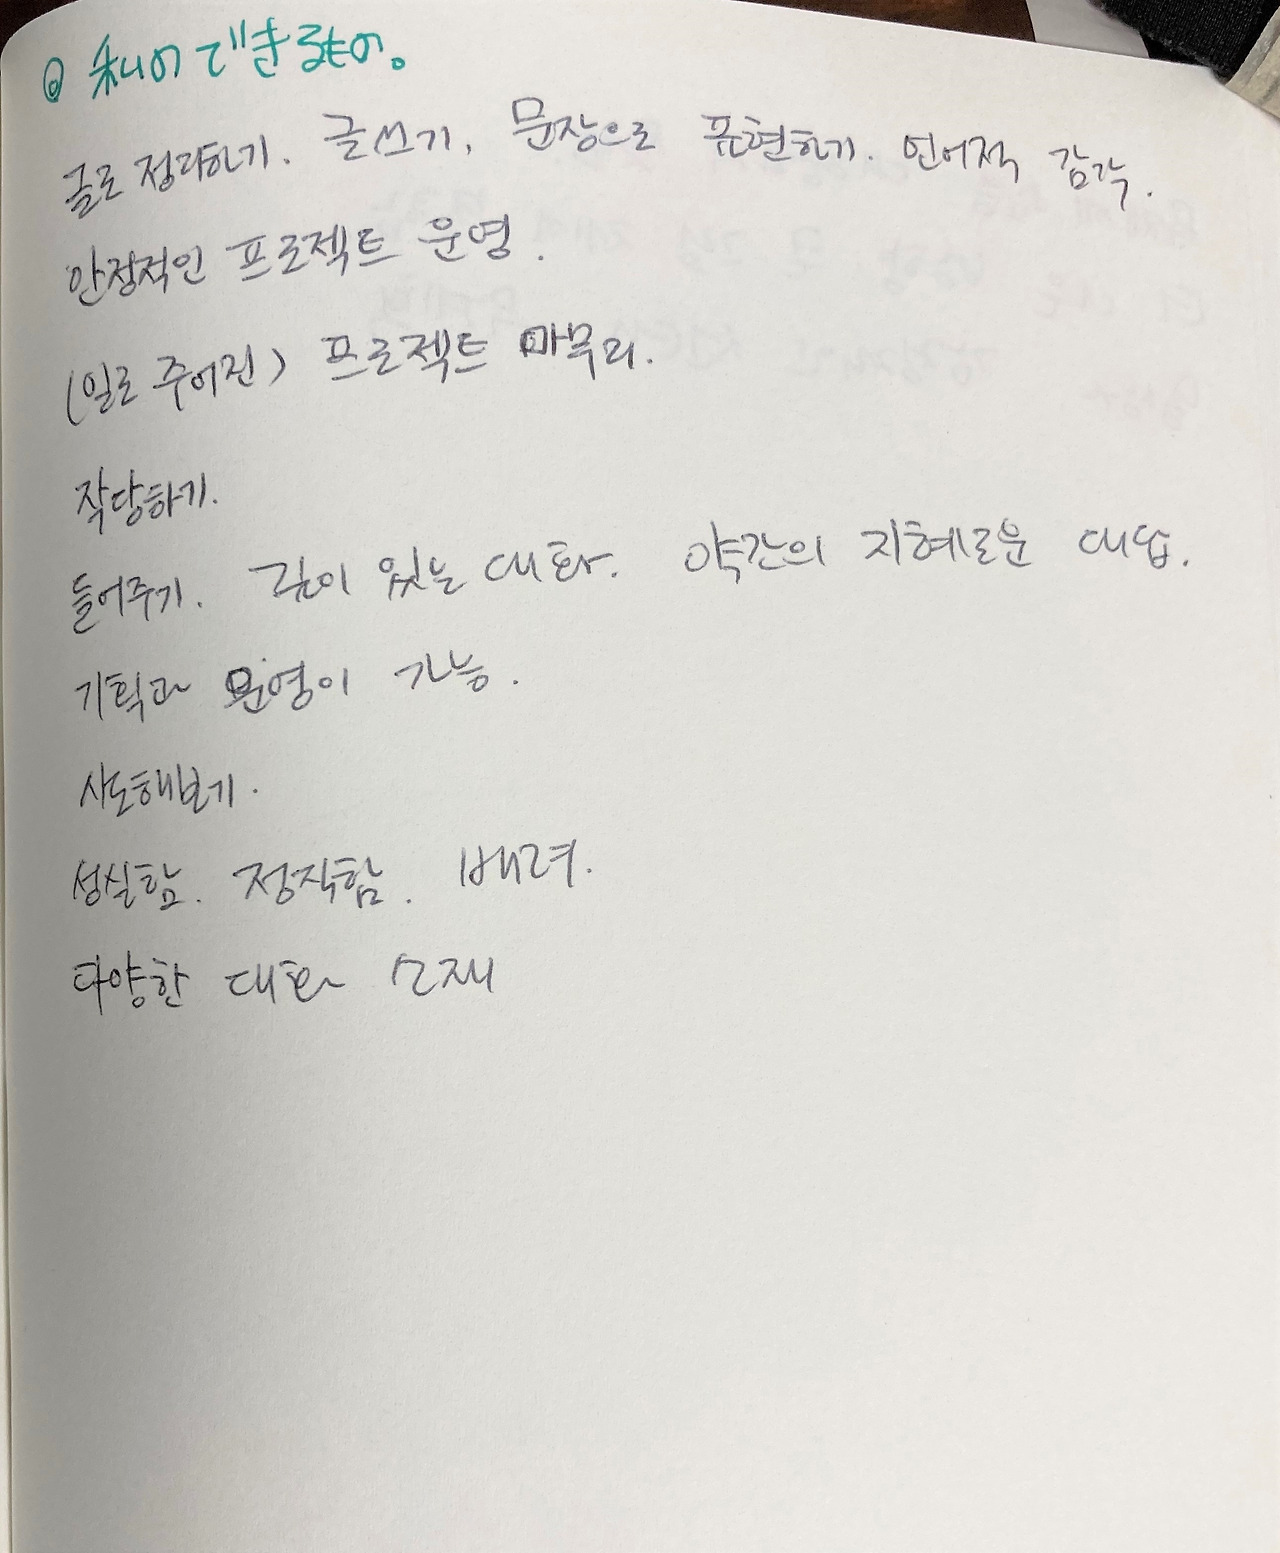 ◎ 私のできるもの。
글로 정리하기. 글쓰기, 문장으로 표현하기. 언어적 감각.
안정적인 프로젝트 운영.
(일로 주어진) 프로젝트 마무리.
작당하기.
들어주기. 깊이 있는 대화. 약간의 지혜로운 대답.
기획과 운영이 가능.
시도해보기.
성실함. 정직함. 배려.
다양한 대화 소재